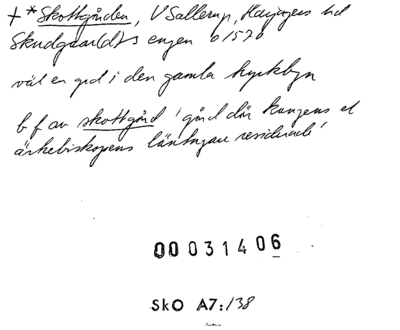 + * Skottgården, V Sallerup, Harjagers hd
Skudgaar(d)s engen o 1570
väl en grd i den gamla kyrkbyn
b f av skottgård 'gård där kungens el
ärkebiskopens läntagare residerade'
00031406
SkO A7:138